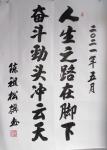 二〇二一年五月
人生之路在脚下
奋斗劲头冲云天
徐祖松撰书